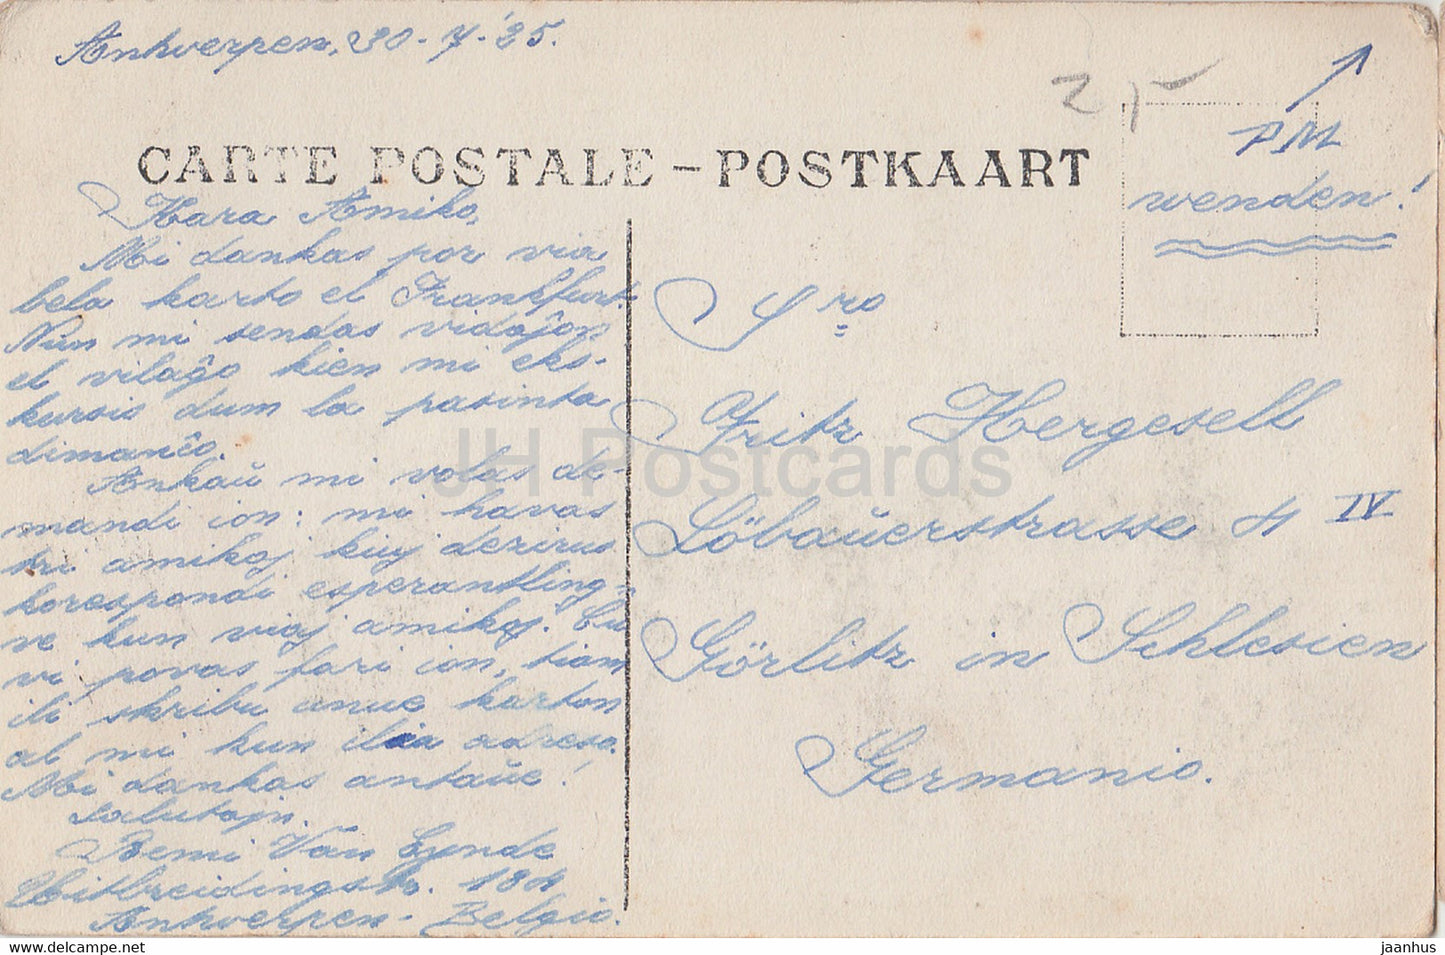 Antwerpen, 30-7-'25.
CARTE POSTALE – POSTKAART
PM
wenden!
Kara Amiko,
Mi dankas por via
bela karto el Frankfurt.
Nun mi sendas vidaĵon
el vilaĝo kien mi eks-
kursis dum la pasinta
dimanĉo.
Ankaŭ mi volas de-
mandi ion: mi havas
tri amikoj kiuj dezirus
korespondi esperantling-
ve kun viaj amikoj. Ĉu
vi povas fari ion, tiam
ili skribu unue karton
al mi kun ilia adreso.
Mi dankas antaŭe!
Salutojn.
Remi Van Eynde
Uitbreidingstr.
Antwerpen - Belgio.
Sro
Fritz Hergesell
Löbauerstrasse 4 IV
Görlitz in Schlesien
Germanio.
JH Postcards
jaanhus